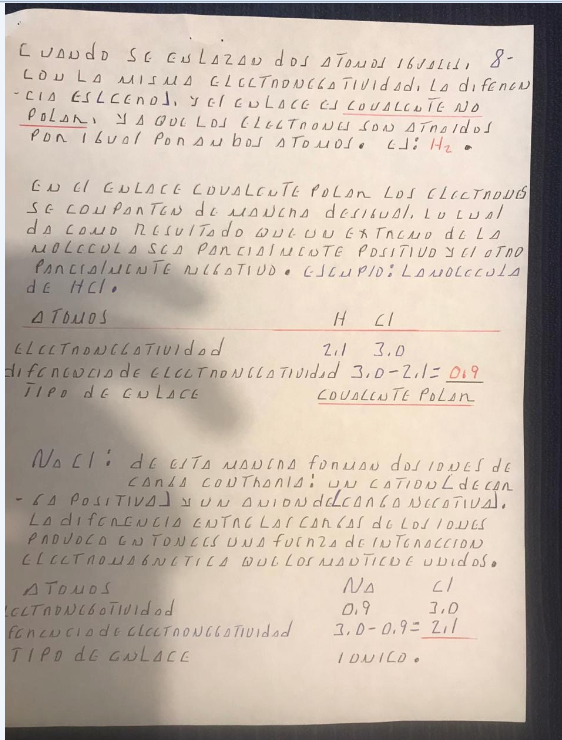 CUANDO SE ENLAZAN DOS ATOMOS IGUALES, 8-
CON LA MISMA ELECTRONEGATIVIDAD, LA DIFEREN
-CIA ES CERO, Y EL ENLACE ES COVALENTE NO
POLAR, YA QUE LOS ELECTRONES SON ATRAIDOS
POR IGUAL POR AMBOS ATOMOS. EJ: H2.
EN EL ENLACE COVALENTE POLAR LOS ELECTRONES
SE COMPARTEN DE MANERA DESIGUAL, LO CUAL
DA COMO RESULTADO QUE UN EXTREMO DE LA
MOLECULA SEA PARCIALMENTE POSITIVO Y EL OTRO
PARCIALMENTE NEGATIVO. EJEMPLO: LA MOLECULA
DE HCl.
ATOMOS H Cl
ELECTRONEGATIVIDAD 2,1 3,0
DIFERENCIA DE ELECTRONEGATIVIDAD 3,0-2,1= 0,9
TIPO DE ENLACE COVALENTE POLAR
NaCl: DE ESTA MANERA FORMAN DOS IONES DE
CARGA CONTRARIA: UN CATION (DE CAR
-GA POSITIVA) Y UN ANION DE (CARGA NEGATIVA).
LA DIFERENCIA ENTRE LAS CARGAS DE LOS IONES
PROVOCA ENTONCES UNA FUERZA DE INTERACCION
ELECTROMAGNETICA QUE LOS MANTIENE UNIDOS.
ATOMOS Na Cl
LECTRONEGATIVIDAD 0,9 3,0
FERENCIA DE ELECTRONEGATIVIDAD 3,0-0,9= 2,1
TIPO DE ENLACE IONICO.